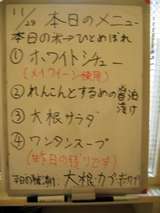 11/28 本日のメニュー
本日の米→ひとめぼれ
① ホワイトシチュー
(メイクイーン使用)
② れんこんとするめの醤油
漬け
③ 大根サラダ
④ ワンタンスープ
(昨日の残りです)
大根カブ